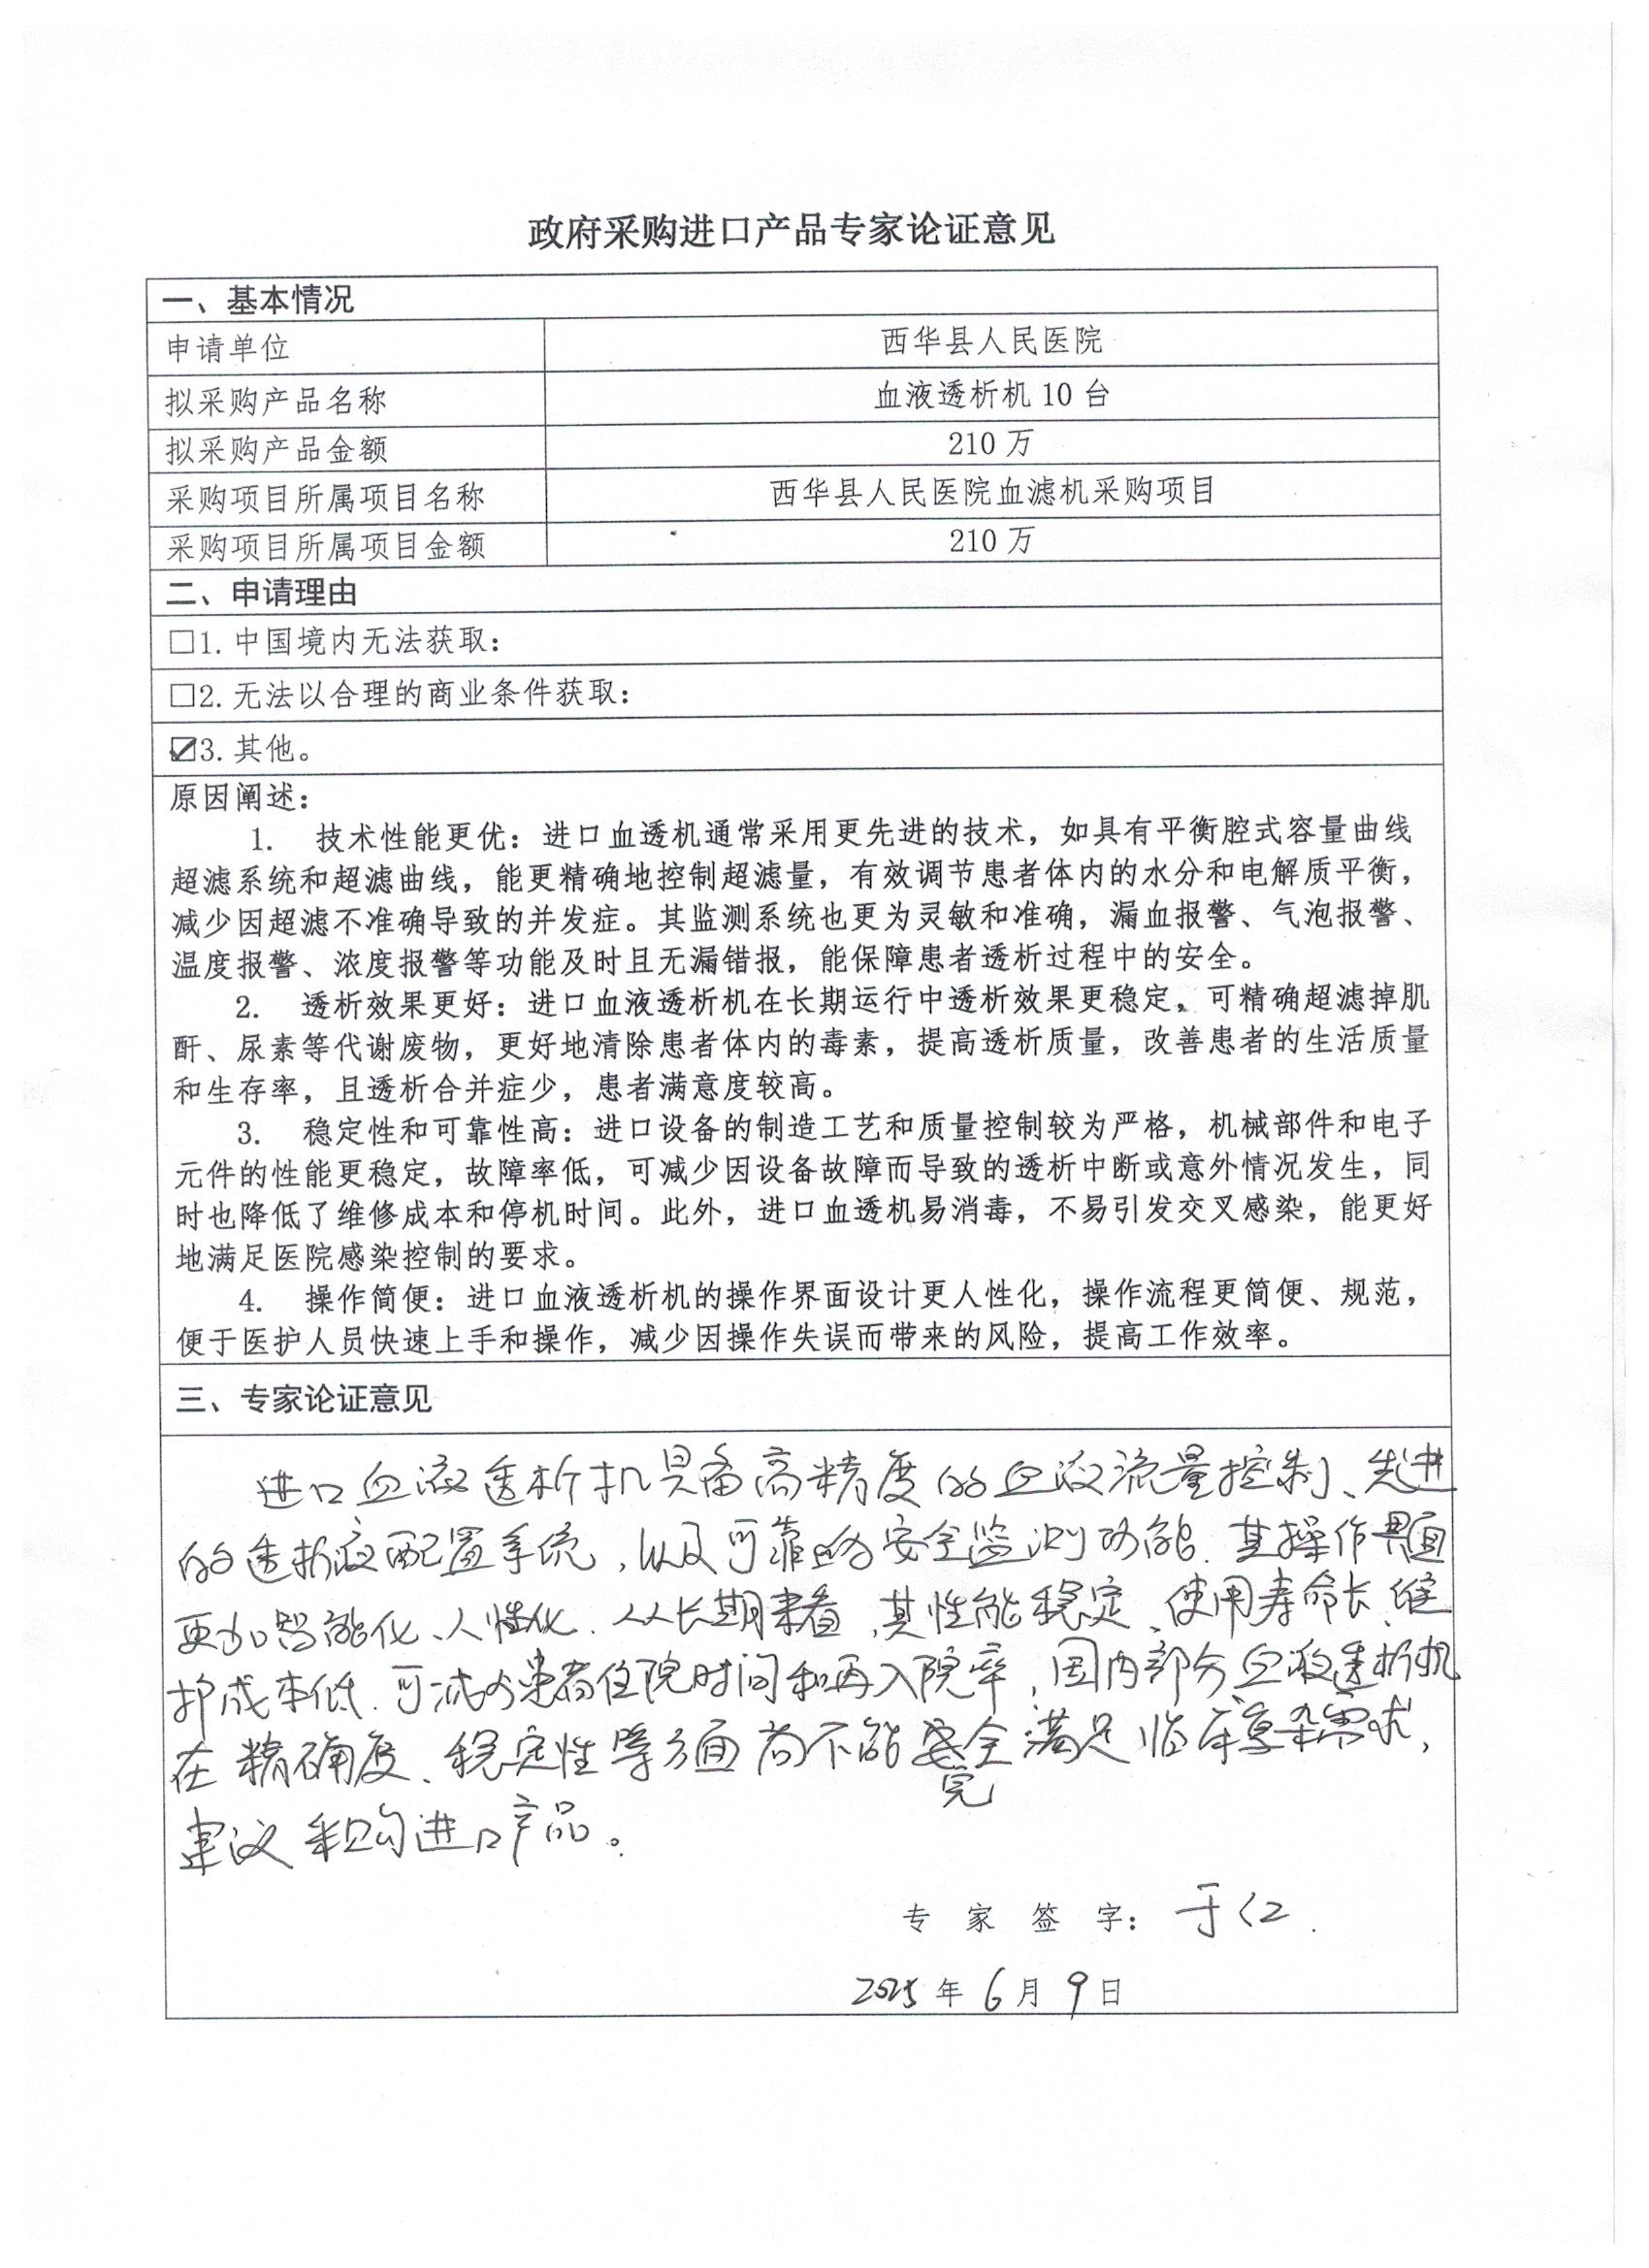 政府采购进口产品专家论证意见
一、基本情况
申请单位 西华县人民医院
拟采购产品名称 血液透析机 10 台
拟采购产品金额 210 万
采购项目所属项目名称 西华县人民医院血滤机采购项目
采购项目所属项目金额 210 万
二、申请理由
□1. 中国境内无法获取：
□2. 无法以合理的商业条件获取：
☑3. 其他。
原因阐述：
1. 技术性能更优：进口血透机通常采用更先进的技术，如具有平衡腔式容量曲线
超滤系统和超滤曲线，能更精确地控制超滤量，有效调节患者体内的水分和电解质平衡，
减少因超滤不准确导致的并发症。其监测系统也更为灵敏和准确，漏血报警、气泡报警、
温度报警、浓度报警等功能及时且无漏错报，能保障患者透析过程中的安全。
2. 透析效果更好：进口血液透析机在长期运行中透析效果更稳定，可精确超滤掉肌
酐、尿素等代谢废物，更好地清除患者体内的毒素，提高透析质量，改善患者的生活质量
和生存率，且透析合并症少，患者满意度较高。
3. 稳定性和可靠性高：进口设备的制造工艺和质量控制较为严格，机械部件和电子
元件的性能更稳定，故障率低，可减少因设备故障而导致的透析中断或意外情况发生，同
时也降低了维修成本和停机时间。此外，进口血透机易消毒，不易引发交叉感染，能更好
地满足医院感染控制的要求。
4. 操作简便：进口血液透析机的操作界面设计更人性化，操作流程更简便、规范，
便于医护人员快速上手和操作，减少因操作失误而带来的风险，提高工作效率。
三、专家论证意见
进口血液透析机具备高精度的血液流量控制、先进
的透析液配置系统，以及可靠的安全监测功能、其操作界面
更加智能化、人性化、从长期来看，其性能稳定、使用寿命长、维
护成本低、可减少患者住院时间和再入院率，国内部分血液透析机
在精确度、稳定性等方面尚不能完全满足临床复杂需求，
建议采购进口产品。
专 家 签 字：于红
2025 年 6 月 9 日